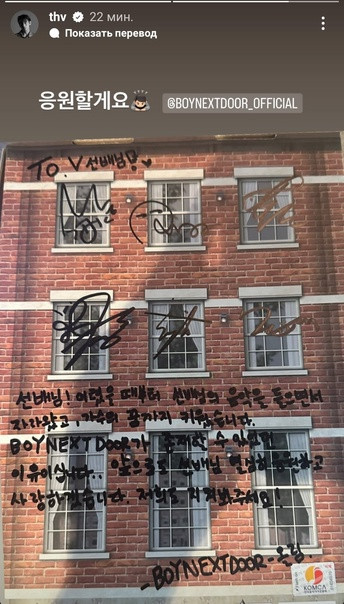 thv 22 мин.
Показать перевод
응원할게요
@BOYNEXTDOOR_OFFICIAL
To. V 선배님!
선배님! 어렸을 때부터 선배님의 음악을 들으면서
자라왔고, 가수의 꿈까지 키웠습니다.
BOYNEXTDOOR가 존재할 수 있었던
이유이십니다.. 앞으로도 선배님 열심히 응원하고
사랑하겠습니다. 저희도 지켜봐주세요!
-BOYNEXTDOOR-올림.
KOMCA